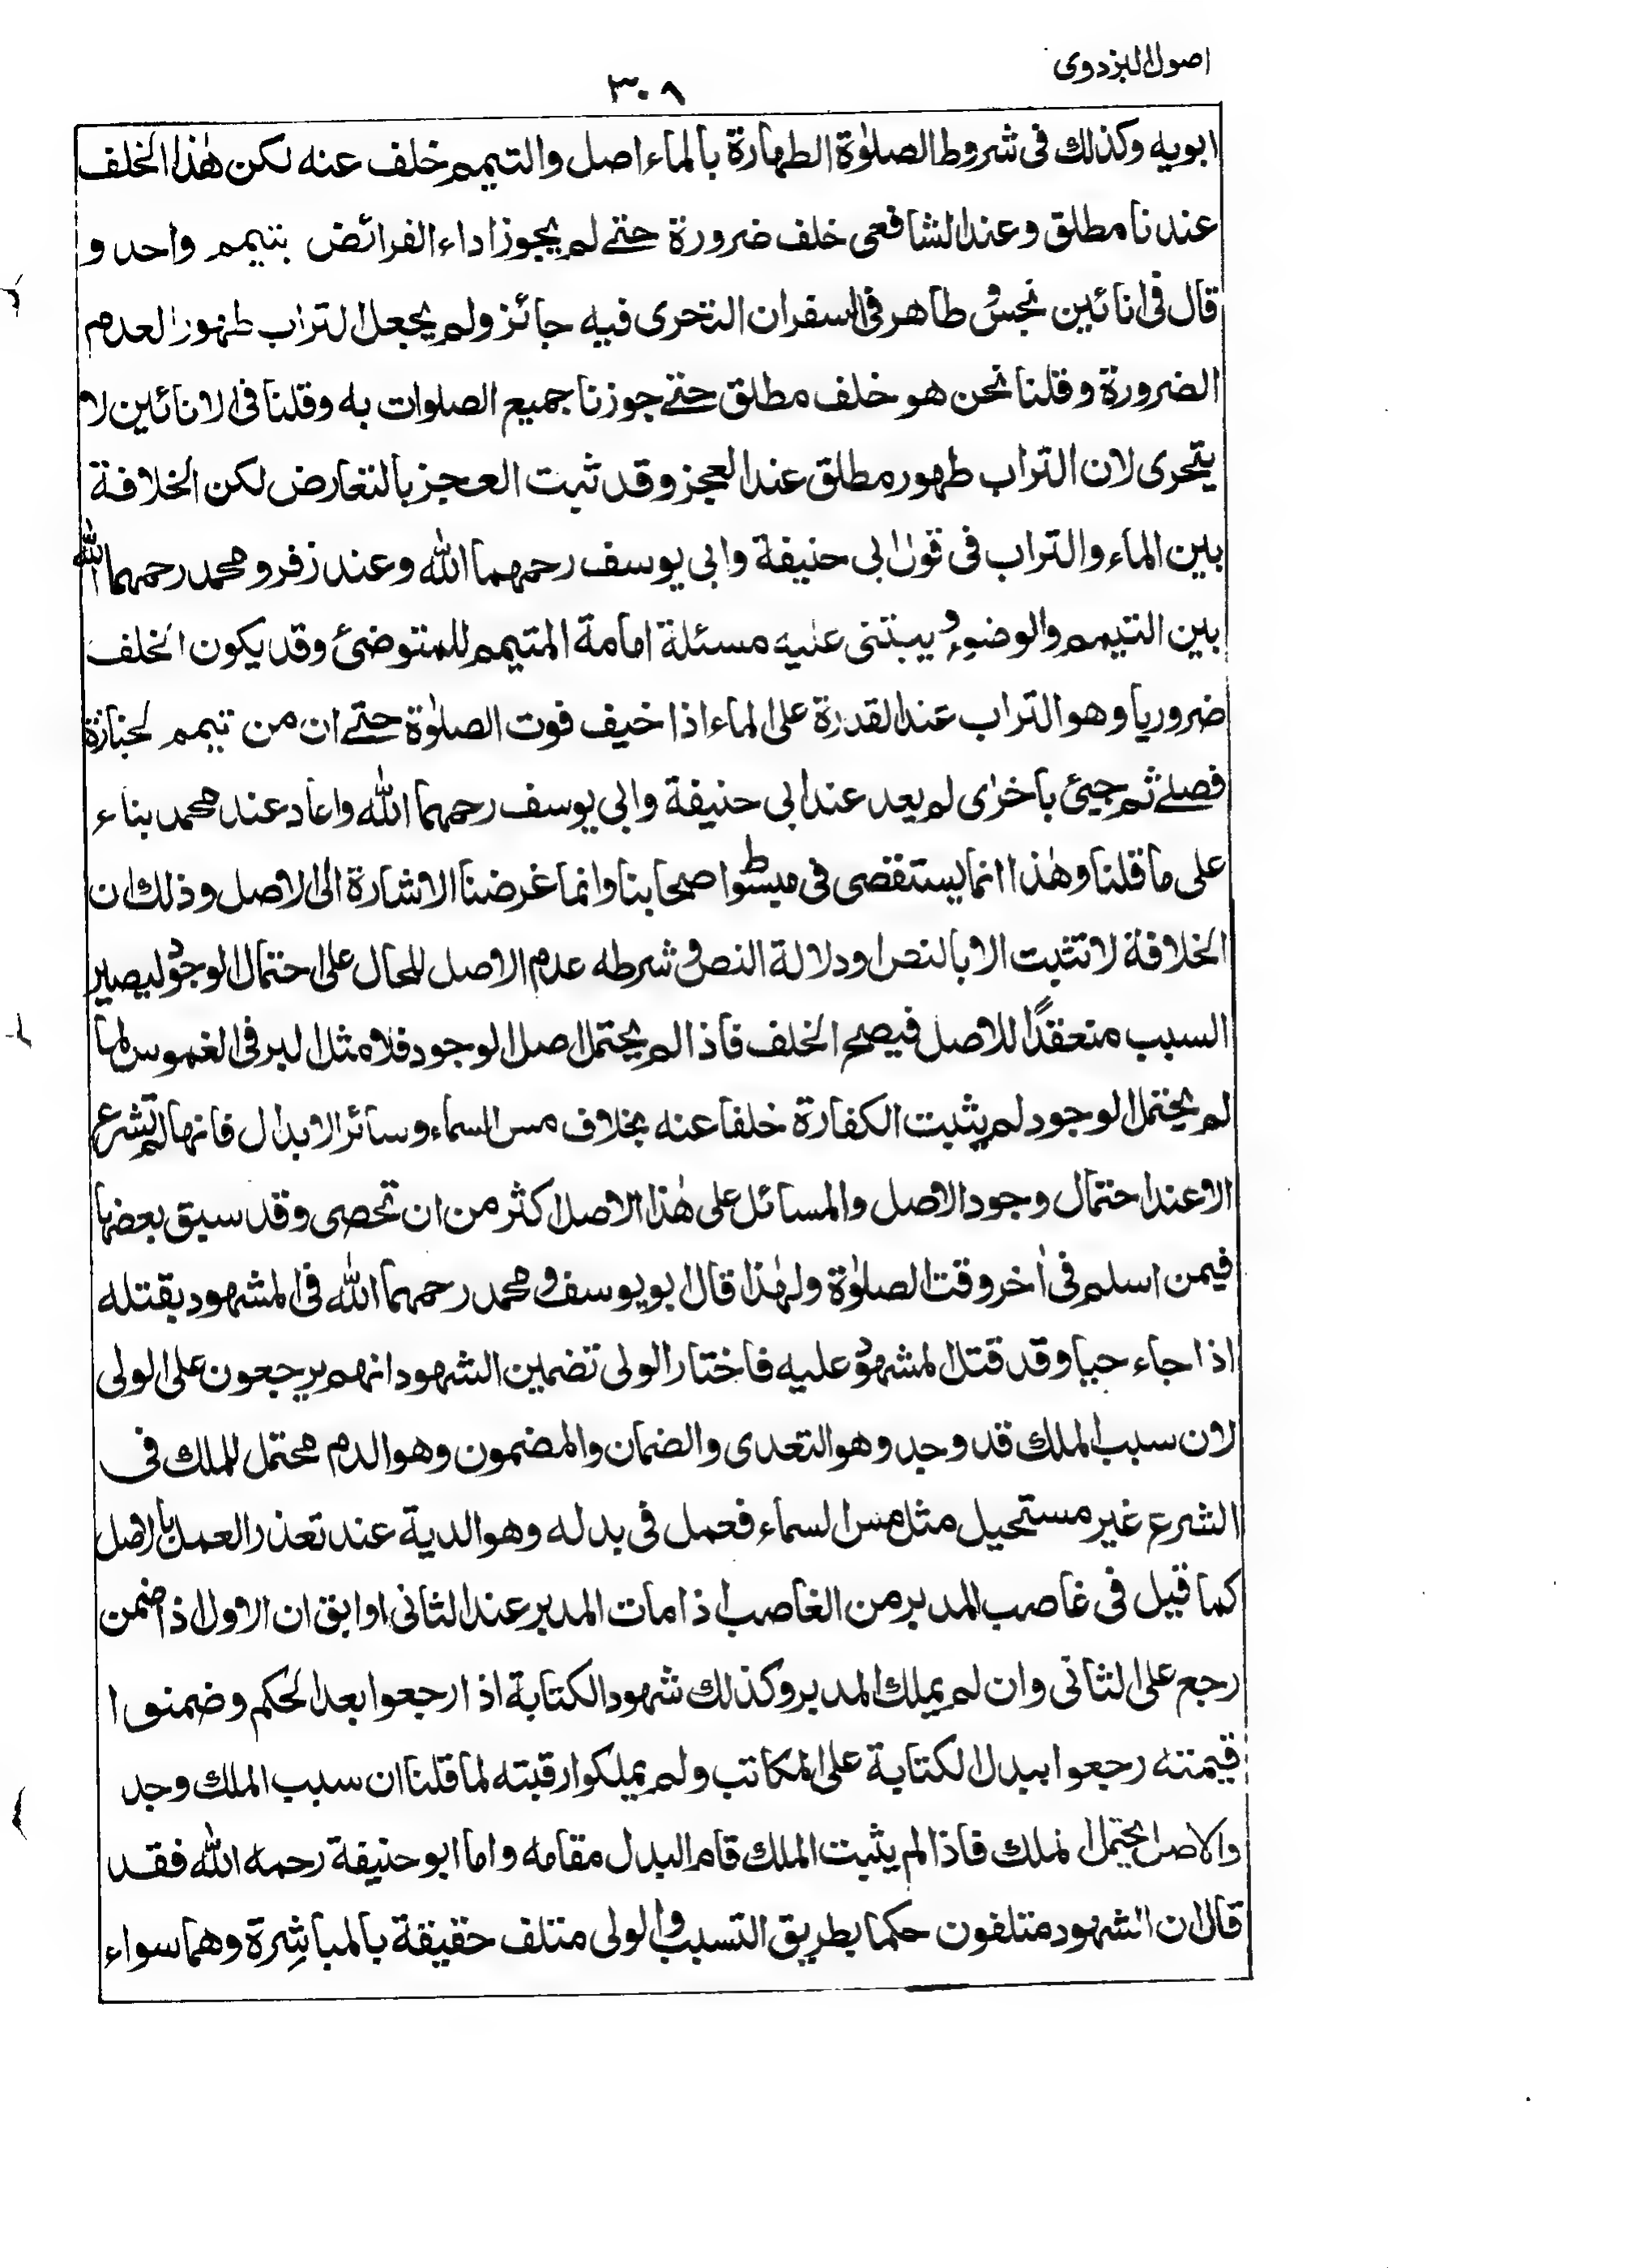 اصول البزدوی
٣٠٨
ابويه وكذلك فی شروط الصلوٰة الطهارة بالماء اصل والتيمم خلف عنه لكن هٰذا الخلف
عندنا مطلق وعند الشافعی خلف ضرورة حتے لم يجوز اداء الفرائض بتيمم واحد و
قال فی انائين نجس و طاهر فی السفر ان التحری فيه جائز ولم يجعل التراب طهورا لعدم
الضرورة وقلنا نحن هو خلف مطلق حتے جوزنا جميع الصلوات به وقلنا فی الانائين لا
يتحری لان التراب طهور مطلق عند العجز وقد ثبت العجز بالتعارض لكن الخلافة
بين الماء والتراب فی قول ابی حنيفة وابی يوسف رحمهما الله وعند زفر ومحمد رحمهما الله
بين التيمم والوضوء و يبتنی عليه مسئلة امامة المتيمم للمتوضئ وقد يكون الخلف
ضروريا وهو التراب عند القدرة علی الماء اذا خيف فوت الصلوٰة حتے ان من تيمم لجنازة
فصلے ثم جيئ باخرٰی لم يعد عند ابی حنيفة وابی يوسف رحمهما الله واعاد عند محمد بناء
علی ما قلنا وهٰذا انما يستقصی فی مبسوط اصحابنا وانما غرضنا الاشارة الی الاصل وذلك ان
الخلافة لا تثبت الا بالنص او دلالة النص و شرطه عدم الاصل للحال علی احتمال الوجود ليصير
السبب منعقدًا للاصل فيصح الخلف فاذا لم يحتمل اصل الوجود فلا مثل البر فی الغموس لما
لم يحتمل الوجود لم يثبت الكفارة خلفا عنه بخلاف مس السماء وسائر الابدال فانها لم تشرع
الا عند احتمال وجود الاصل والمسائل علی هٰذا الاصل اكثر من ان تحصی وقد سبق بعضها
فيمن اسلم فی اٰخر وقت الصلوٰة ولهٰذا قال ابو يوسف و محمد رحمهما الله فی المشهود بقتله
اذا جاء حيا وقد قتل المشهود عليه فاختار الولی تضمين الشهود انهم يرجعون علی الولی
لان سبب الملك قد وجد وهو التعدی والضمان والمضمون وهو الدم محتمل للملك فی
الشرع غير مستحيل مثل مس السماء فعمل فی بدله وهو الدية عند تعذر العمل بالاصل
كما قيل فی غاصب المدبر من الغاصب اذا مات المدبر عند الثانی او ابق ان الاول اذا ضمن
رجع علی الثانی وان لم يملك المدبر وكذلك شهود الكتابة اذا رجعوا بعد الحكم وضمنوا
قيمته رجعوا ببدل الكتابة علی المكاتب ولم يملكوا رقبته لما قلنا ان سبب الملك وجد
والاصل يحتمل الملك فاذا لم يثبت الملك قام البدل مقامه واما ابو حنيفة رحمه الله فقد
قال ان الشهود متلفون حكما بطريق التسبب والولی متلف حقيقة بالمباشرة وهما سواء